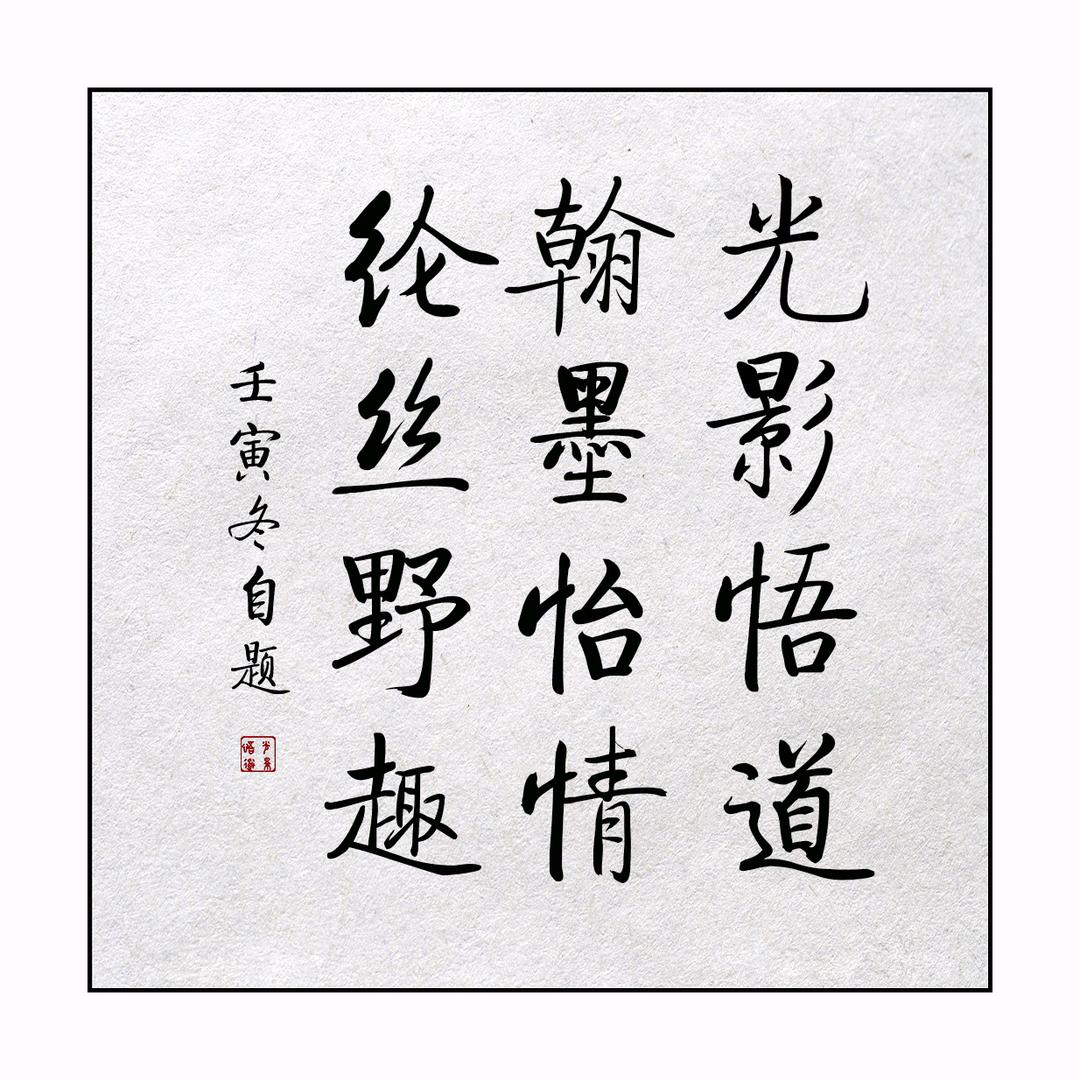 光影悟道
翰墨怡情
纶丝野趣
壬寅冬自题
光影悟道